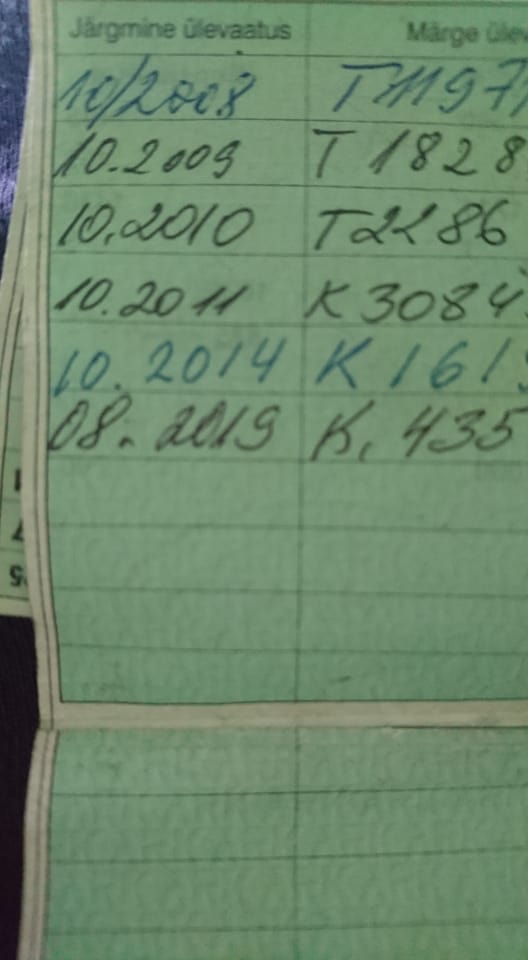 Järgmine ülevaatus Märge ülev
10/2008 T11971
10.2009 T1828
10.2010 T2286
10.2011 K3084
10.2014 K1619
08.2019 K. 435